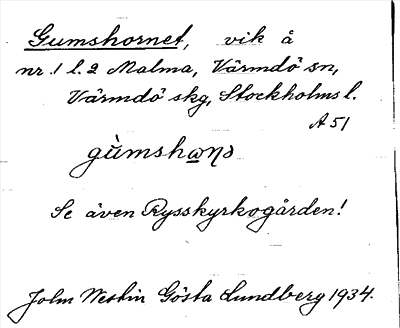 Gumshornet, vik å
nr. 1 l. 2 Malma, Värmdö sn,
Värmdö skg, Stockholms l.
A 51
gùmshɷꞃə
Se även Rysskyrkogården!
John Westin Gösta Lundberg 1934.